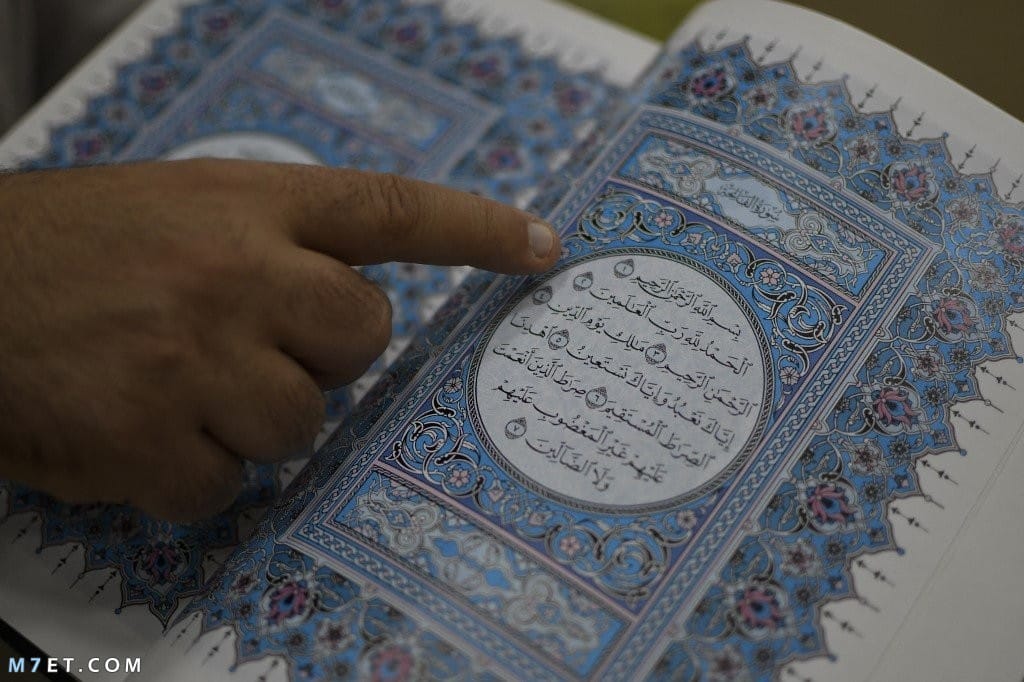 سورة الفاتحة
بسم الله الرحمن الرحيم ١
الحمد لله رب العالمين ٢
الرحمن الرحيم ٣ ملك يوم الدين ٤
إياك نعبد وإياك نستعين ٥ اهدنا
الصرط المستقيم ٦ صرط الذين أنعمت
عليهم غير المغضوب عليهم
ولا الضالين ٧
M7ET.COM